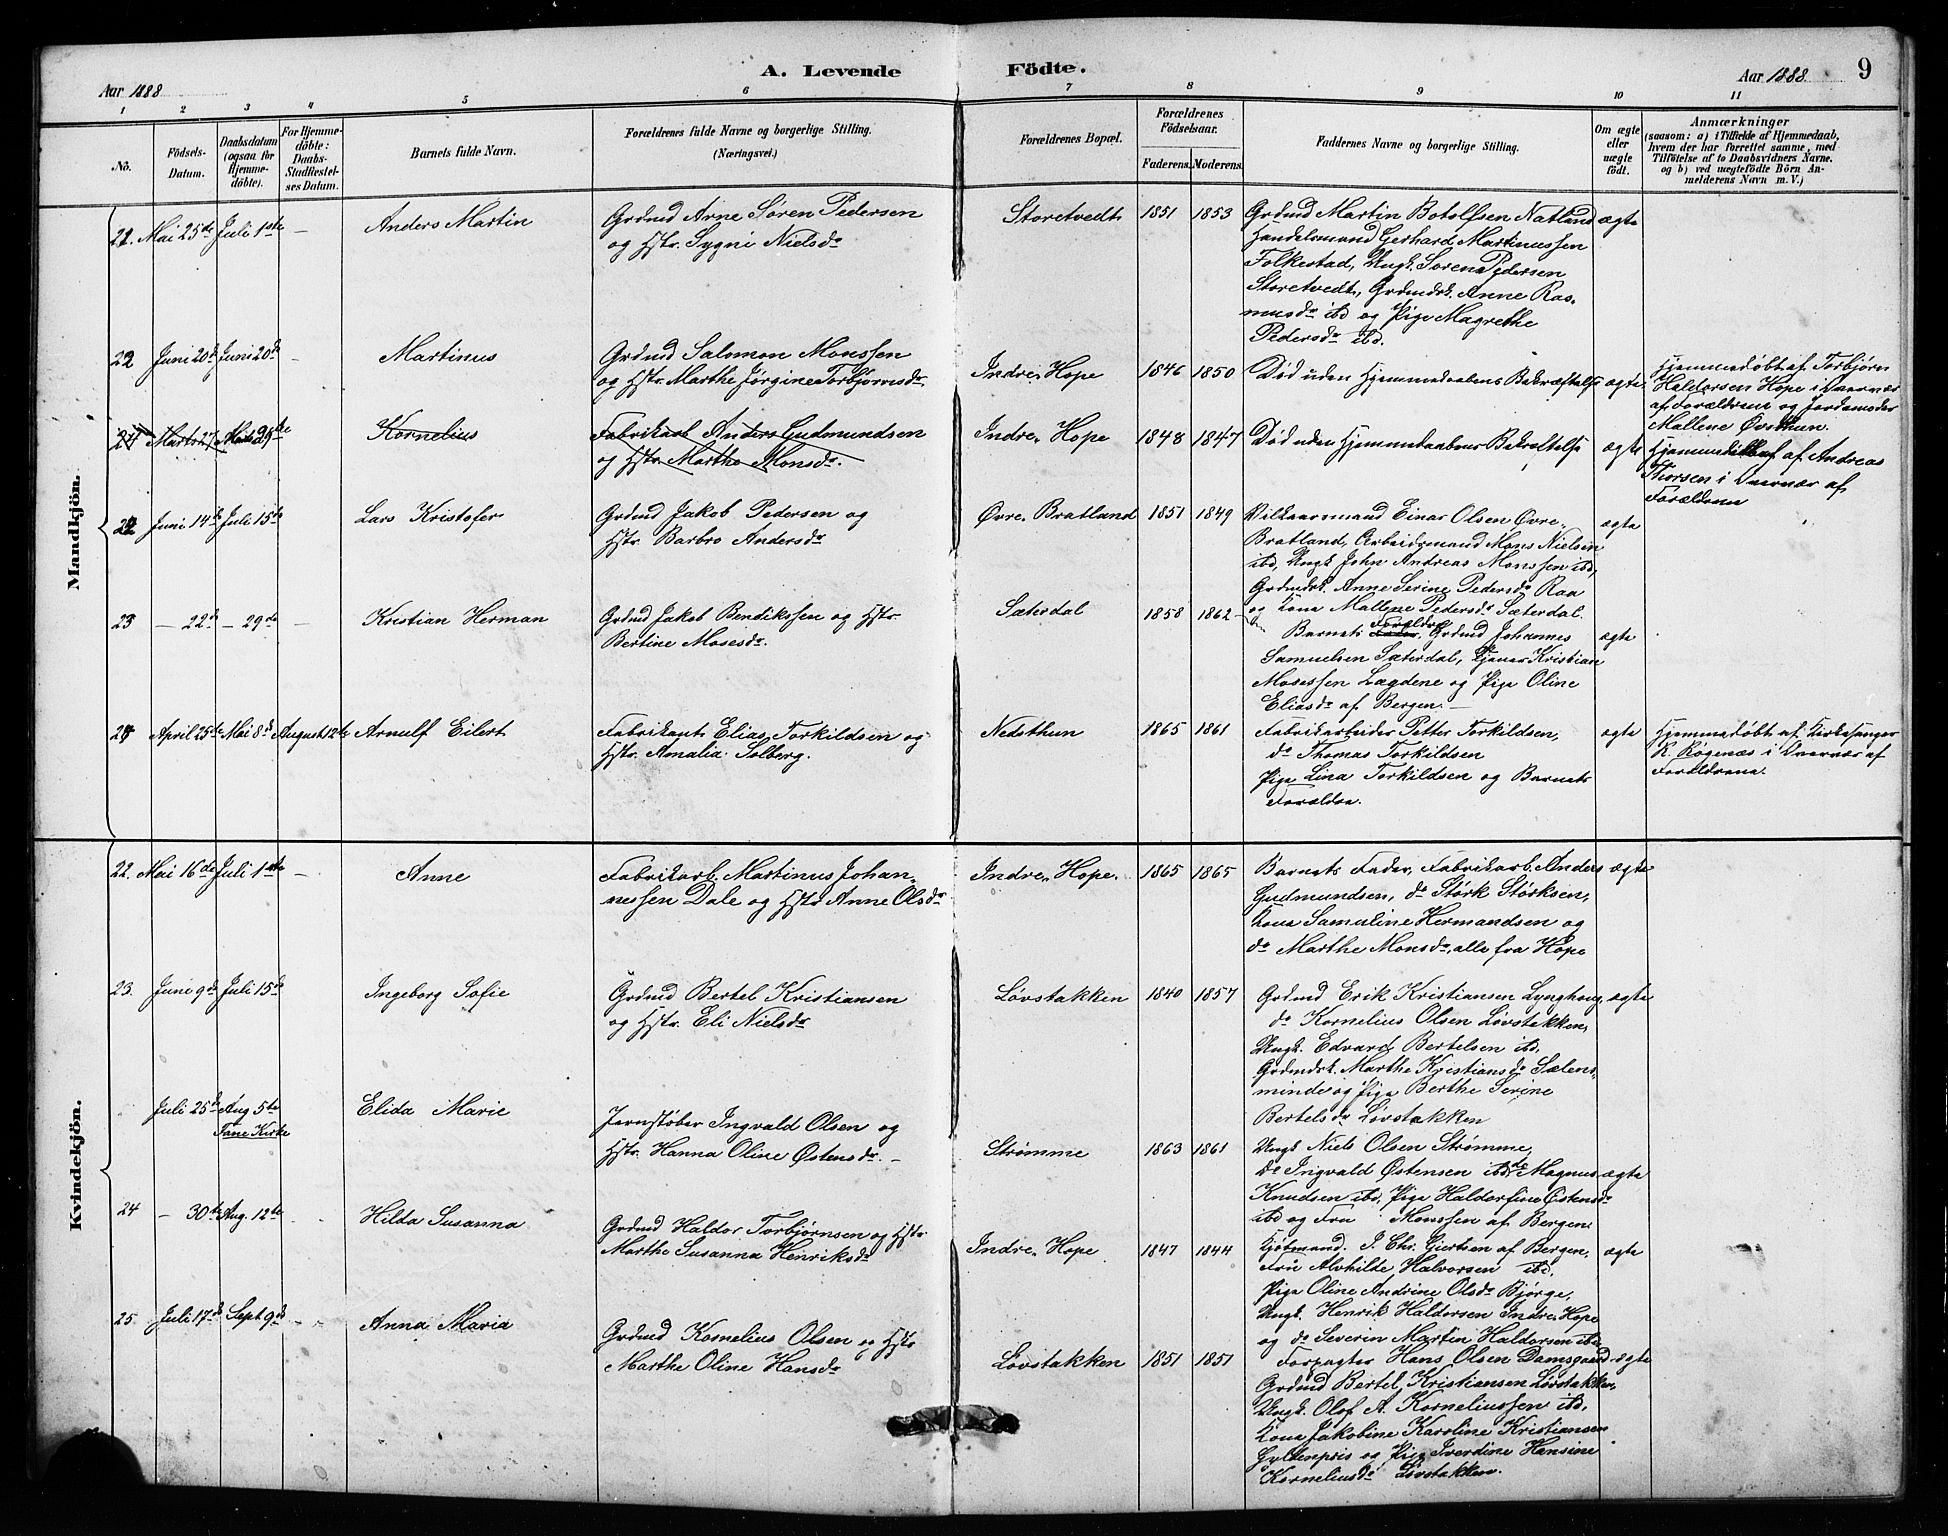 A. Levende Födte.
Aar 1888
Aar 1888. 9
1 2 3 4 5 6 7 8 9 10 11
No.
Födsels-Datum.
Daabsdatum (ogsaa for Hjemme-döbte).
For Hjemme-döbte: Daabs-Stadfæstel-ses Datum.
Barnets fulde Navn.
Forældrenes fulde Navne og borgerlige Stilling.
(Næringsvei.)
Forældrenes Bopæl.
Forældrenes Födselsaar.
Faderens. Moderens.
Faddernes Navne og borgerlige Stilling.
Om ægte eller uægte födt.
Anmærkninger
(saasom: a) i Tilfælde af Hjemmedaab,
hvem der har forrettet samme, med
Tilföielse af to Daabsvidners Navne.
og b) ved uægtefödte Börn An-
melderens Navn m. V.)
Mandkjön.
21. Mai 25de Juli 1ste — Anders Martin
Grdmd Arne Søren Pedersen
og Hstr. Sygni Nielsdr
Storetvedt 1851 1853
Grdmd Martin Botolfsen Natland
Handelsmand Gerhard Martinussen
Folkestad, Ungk. Søren Pedersen
Storetvedt, Grdmdsk. Anne Ras-
musdr ibd og Pige Magrethe
Pedersdr ibd.
ægte
22 Juni 20de Juni 20de — Martinus
Grdmd Salomon Monssen
og Hstr. Marthe Jørgine Torbjørnsdr.
Indre Hope 1846 1850
Død uden Hjemmedaabens Bekræftelse
ægte
Hjemmedøbt af Torbjørn
Haldorsen Hope i Overvær
af Forældrene og Jordemoder
Mallene Øvsthun.
Marts 27 Kornelius
Fabrikarb Anders Gudmundsen
og Hstr. Marthe Monsdr.
Indre Hope 1848 1847
Død uden Hjemmedaabens Bekræftelse
ægte
Hjemmedøbt af Andreas
Thorsen i Overvær af
Forældrene
Juni 14de Juli 15de Lars Kristofer
Grdmd Jakob Pedersen og
Hstr. Barbro Andersdr
Øvre Bratland 1851 1849
Vilkaarsmand Einar Olsen Øvre
Bratland, Arbeidsmand Mons Nielsen
ibd, Ungk John Andreas Monssen ibd,
Grdmdsk. Anne Serine Pedersdr Raa
og Kona Mallene Pedersdr Sæterdal.
ægte
23 — 22de — 29de — Kristian Herman
Grdmd Jakob Bendikssen og Hstr.
Bertine Mosesdr.
Sæterdal 1858 1862
Barnets Forældre, Grdmd Johannes
Samuelsen Sæterdal, Tjener Kristian
Mosessen Lægdene og Pige Oline
Eliasdr af Bergen.
ægte
24 April 25de Mai 8de August 12te Arnulf Eilert
Fabrikant Elias Torkildsen og
Hstr. Amalia Solberg.
Nedsthun 1865 1861
Fabrikarbeider Petter Torkildsen,
do Thomas Torkildsen
Pige Lina Torkildsen og Barnets
Forældre.
ægte
Hjemmedøbt af Kirkesanger
K. Røgenæs i Overvær af
Forældrene.
Kvindekjön.
22. Mai 16de Juli 1ste — Anne
Fabrikarb. Martinus Johan-
nessen Dale og Hstr Anne Olsdr
Indre Hope. 1865 1865
Barnets Fader, Fabrikarb. Anders
Gudmundsen, do Størk Størksen,
Kona Samuline Hermandsen og
do Marthe Monsdr, alle fra Hope
ægte
23. Juni 9de Juli 15de Ingeborg Sofie
Grdmd Bertel Kristiansen
og Hstr. Eli Nielsdr
Løvstakken 1840 1857
Grdmd Erik Kristiansen Lynghaug,
do Kornelius Olsen Løvstakken,
Ungk. Edvard Bertelsen ibd,
Grdmdsk. Marthe Kristiansdr Sælens-
minde og Pige Berthe Serine
Bertelsdr Løvstakken
ægte
Juli 25de Aug 5te Fane Kirke Elida Marie
Jernstøber Ingvald Olsen og
Hstr. Hanna Oline Østensdr.
Strømme 1863 1861
Ungk Niels Olsen Strømme,
do Ingvald Østensen ibd, do Magnus
Knudsen ibd, Pige Haldorfine Østensdr
ibd og Fru Monssen af Bergen.
ægte
24 — 30te Aug. 12te Hilda Susanna
Grdmd Haldor Torbjørnsen og Hstr
Marthe Susanna Henriksdr
Indre Hope 1847 1844
Kjøbmand. J. Chr. Giertsen af Bergen,
Fru Alvhilde Halvorsen ibd,
Pige Oline Andrine Olsdr Bjørge,
Ungk. Henrik Haldorsen Indre Hope
og do Severin Martin Haldorsen ibd
ægte
25. Juli 17de Sept 9de Anna Maria
Grdmd Kornelius Olsen og Hstr
Marthe Oline Hansdr
Løvstakken 1851 1851
Forpagter Hans Olsen Damsgaard
Grdmd Bertel Kristiansen Løvstakken,
Ungk. Olof A. Korneliussen ibd,
Kona Jakobine Karoline Kristiansen
Gyldenpris og Pige Iverdine Hansine
Korneliusdr Løvstakken.
ægte